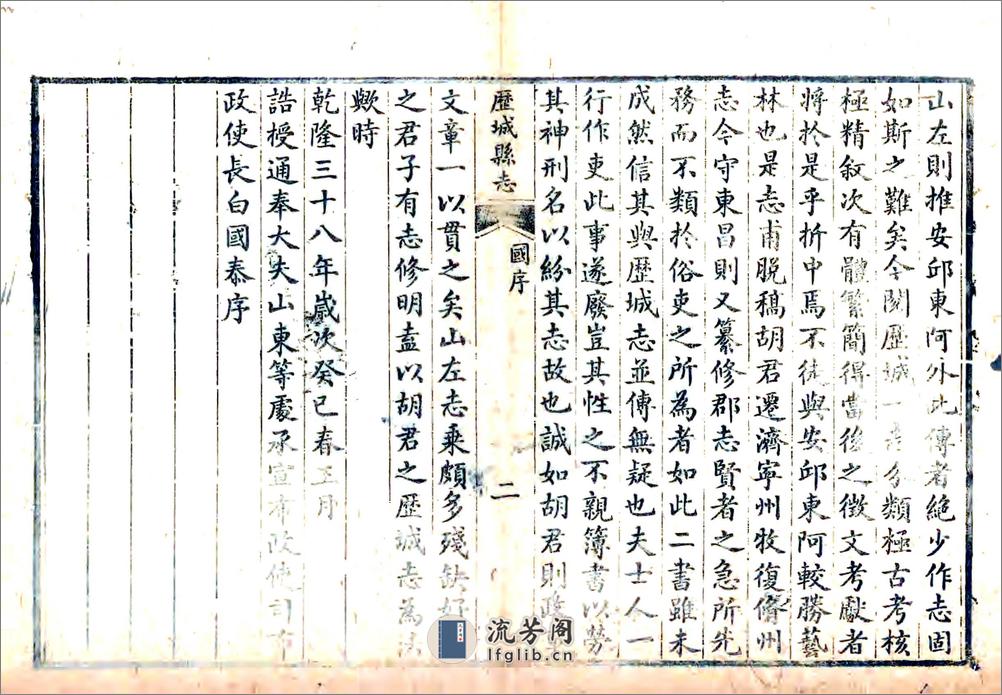 山左則推安邱東阿外此傳者絕少作志固
如斯之難矣今閱歷城一志分類極古考核
極精敘次有體繁簡得當後之徵文考獻者
將於是乎折中焉不徒與安邱東阿較勝藝
林也是志甫脫稿胡君遷濟寧州牧復脩州
志今守東昌則又纂修郡志賢者之急所先
務而不類於俗吏之所為者如此二書雖未
成然信其與歷城志並傳無疑也夫士人一
行作吏此事遂廢豈其性之不親簿書以勞
其神刑名以紛其志故也誠如胡君則政
歷城縣志
國序
二
文章一以貫之矣山左志乘頗多殘缺好
之君子有志修明盍以胡君之歷城志為法
歟時
乾隆三十八年歲次癸巳春正月
誥授通奉大夫山東等處承宣布政使司布
政使長白國泰序
流芳阁
lfglib.cn